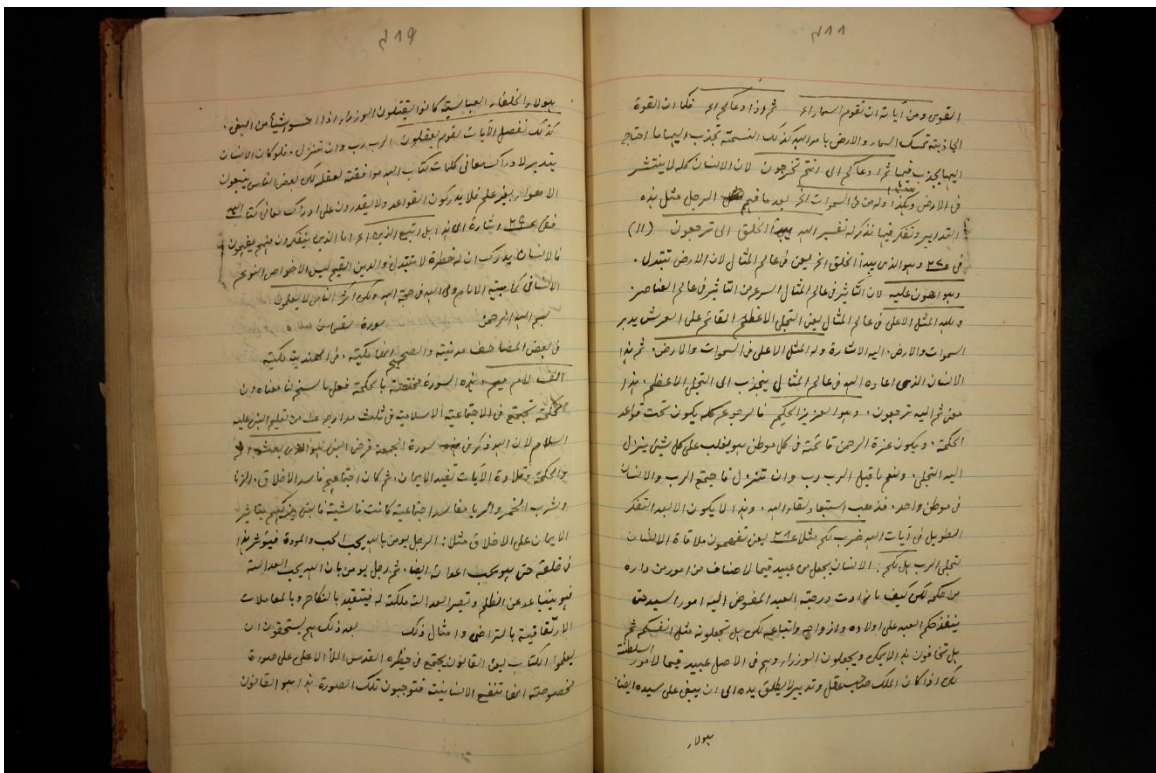 ٤٨٨
القوى ومن آياته ان تقوم السماء الخ ثم اذا دعاكم الخ فكما ان القوة
الجاذبة تمسك السماء والارض بامر الله كذلك النسمة تجذب اليها ما احتاج
اليها يجذب فيها ثم اذا دعاكم الى انتم تخرجون لان الانسان كله لا ينتشر
فى الارض وهكذا وله من فى السموات الخ بعد ما فهم الرجل مثل هذه
التدابير وتفكر فيها نذكر له تفسير الله يبدأ الخلق الى ترجعون (١١)
فى ع٢٧ وهو الذى يبدأ الخلق الخ يعنى فى عالم المثال لان الارض تتبدل ٠
وهو اهون عليه لان التاثير فى عالم المثال اسرع من التاثير فى عالم العناصر ٠
وله المثل الاعلى فى عالم المثال يعنى التجلى الاعظم القائم على العرش يدبر
السموات والارض ٠ اليه الاشارة وله المثل الاعلى فى السموات والارض ٠ ثم هذا
الانسان الذى اعاده الله فى عالم المثال ينجذب الى التجلى الاعظم ٠ هذا
معنى ثم اليه ترجعون ٠ وهو العزيز الحكيم فالرجوع كله يكون تحت قواعد
الحكمة ٠ ويكون عزة الرحمن قائمة فى كل موطن هو يغلب على كل شيئ ينزل
اليه التجلى ٠ ونعم ما قيل الرب رب وان تنزل فاجتمع الرب والانسان
فى موطن واحد ٠ فذهب استبعاد لقاء الله ٠ وهذا لا يكون الا بعد التفكر
الطويل فى آيات الله ضرب لكم مثلا ع٢٨ يعنى تفهمون ملاقاة الانسان
لتجلى الرب هل لكم : الانسان يجعل من عبيده قيما لاصناف من امور من داره
من حكمه لكن كيف ما زادت درجة العبد المفوض اليه امور السيد حتى
ينفذ حكم العبد على اولاده وازواجه واتباعه لكن هل تجعلونه مثل انفسكم ثم
هل تخافون هذا لا يمكن ويجعلون الوزراء وهم فى الاصل عبيد قيما لامور السلطنة
لكن اذا كان الملك صاحب عقل وتدبير لا يطلق يده الى ان يبغى على سيده ايضا ٠
هولاء
٤٨٩
هولاء الخلفاء العباسية كانوا يقتلون الوزراء اذا احسوا شيأ من البغى ٠
كذلك نفصل الآيات لقوم يعقلون الرب رب وان تنزل ٠ فلو كان الانسان
يتدبر لادراك معانى كلمات كتاب الله موافقة لعقله لكن بعض الناس يتبعون
الاهواء بغير علم فلا يدركون القواعد ولا يقدرون على ادراك معانى كتاب الله
ففى ع٢٩ اشارة الى هذا بل اتبع الذين الخ اما الذين يتفكرون فهم يفقهون
فالانسان يدرك ان له فطرة لا تتبدل والدين القيم ليس الا خواص النوع
الانسانى كما بينه الامام ولى الله فى حجة الله ولكن اكثر الناس لا يعلمون
بسم الله الرحمن سورة لقمان
فى بعض المصاحف مدنية والصحيح انها مكية ٠ فى الهندية مكية
الف لام ميم ٠ هذه السورة مختصة بالحكمة فعلى ما سنح لنا معناه ان
الحكمة تجتمع فى الاجتماعية الاسلامية فى ثلاث مدارج من تعليم النبى عليه
السلام لان الله ذكر فى سورة الجمعة فرض النبى هو الذى بعث الخ
والحكمة وتلاوة الآيات تفيد الايمان ٠ ثم كان اجتماعهم فاسد الاخلاق ٠ الزنا
وشرب الخمر والربا مفاسد اجتماعية كانت فاشية فالنبى يزكيهم بتاثير
الايمان على الاخلاق مثلا : الرجل يومن بالله يحب الحب والمودة فيؤثر هذا
فى خلقه حتى هو يحب اعداءه ايضا ٠ ثم رجل يومن بان الله يحب العدالة
فهو يتباعد عن الظلم وتصير العدالة ملكة له فيتقيد بالنكاح وبالمعاملات
الارتفاقية بالتراضى وامثال ذلك بعد ذلك هم يستحقون ان
يعلموا الكتاب يعنى القانون يجتمع فى حظيرة القدس الملأ الاعلى على صورة
مخصوصة انها تنفع الانسانية فتوجبون تلك الصورة ٠ هذا هو القانون